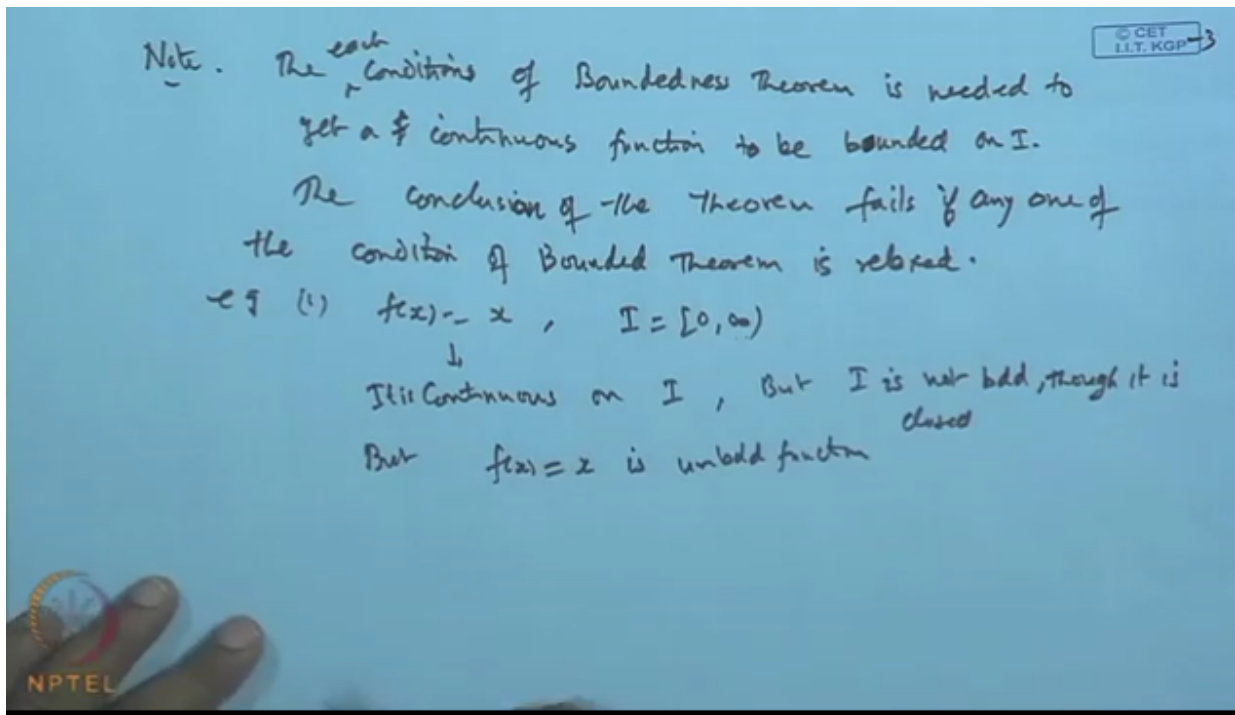 © CET
I.I.T. KGP -3
Note. The each conditions of Boundedness Theorem is needed to
get a continuous function to be bounded on I.
The conclusion of the Theorem fails if any one of
the condition of Bounded Theorem is relaxed.
eg (1) f(x) = x , I = [0, ∞)
↓
It is Continuous on I , But I is not bdd, though it is
closed
But f(x) = x is unbdd function
NPTEL